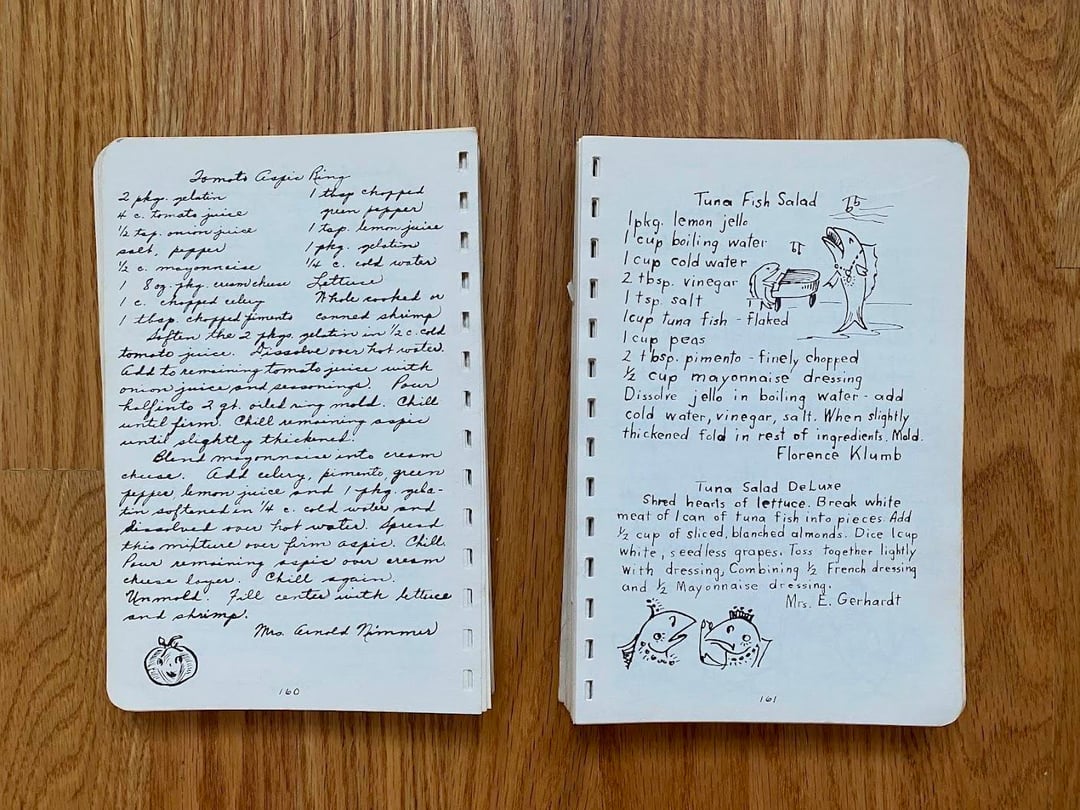 Tomato Aspic Ring
2 pkg. gelatin
4 c. tomato juice
½ tsp. onion juice
salt, pepper
½ c. mayonnaise
1 8 oz. pkg. cream cheese
1 c. chopped celery
1 tbsp. chopped pimento
1 tbsp chopped
green pepper
1 tsp. lemon juice
1 pkg. gelatin
¼ c. cold water
Lettuce
Whole cooked or
canned shrimp
Soften the 2 pkgs. gelatin in ½ c. cold
tomato juice. Dissolve over hot water.
Add to remaining tomato juice with
onion juice and seasonings. Pour
half into 2 qt. oiled ring mold. Chill
until firm. Chill remaining aspic
until slightly thickened.
Blend mayonnaise into cream
cheese. Add celery, pimento, green
pepper, lemon juice and 1 pkg. gela-
tin softened in ¼ c. cold water and
dissolved over hot water. Spread
this mixture over firm aspic. Chill.
Pour remaining aspic over cream
cheese layer. Chill again.
Unmold. Fill center with lettuce
and shrimp.
Mrs. Arnold Nimmer
160
Tuna Fish Salad
1 pkg. lemon jello
1 cup boiling water
1 cup cold water
2 tbsp. vinegar
1 tsp. salt
1 cup tuna fish - flaked
1 cup peas
2 tbsp. pimento - finely chopped
½ cup mayonnaise dressing
Dissolve jello in boiling water - add
cold water, vinegar, salt. When slightly
thickened fold in rest of ingredients. Mold.
Florence Klumb
Tuna Salad DeLuxe
Shred hearts of lettuce. Break white
meat of 1 can of tuna fish into pieces. Add
½ cup of sliced, blanched almonds. Dice 1 cup
white, seedless grapes. Toss together lightly
with dressing, Combining ½ French dressing
and ½ Mayonnaise dressing.
Mrs. E. Gerhardt
161